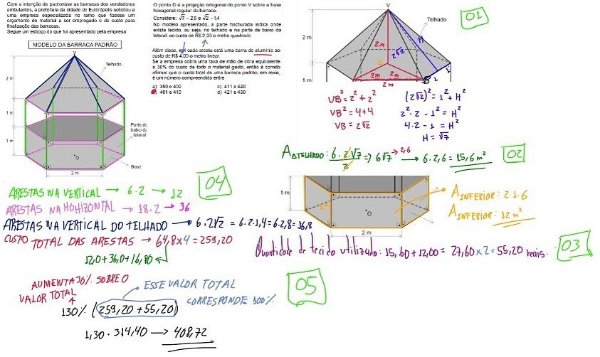 Com a intenção de padronizar as barracas dos vendedores
ambulantes, a prefeitura da cidade de Eunápolis solicitou a
uma empresa especializada no ramo que fizesse um
orçamento do material a ser empregado e do custo para
finalização das barracas.
Segue um esboço do que foi apresentado pela empresa:
MODELO DA BARRACA PADRÃO
V
Telhado
2 m
1 m
2 m
Parte de
baixo da
lateral
Base
2 m
O ponto O é a projeção ortogonal do ponto V sobre a base
hexagonal regular da barraca.
Considere: √7 = 2,6 e √2 = 1,4
No modelo apresentado, a parte hachurada indica onde
existe tecido, ou seja, no telhado e na parte de baixo da
lateral, ao custo de R$ 2,00 o metro quadrado.
Além disso, em cada aresta está uma barra de alumínio ao
custo de R$ 4,00 o metro linear.
Se a empresa cobra uma taxa de mão de obra equivalente
a 30% do custo de todo o material gasto, então é correto
afirmar que o custo total de uma barraca padrão, em reais,
é um número compreendido entre
a) 390 e 400
b) 401 e 410
c) 411 e 420
d) 421 e 430
01
V
Telhado
2 m
2√2
H
2 m
2 m
1 m
B
1
VB² = 2² + 2²
VB² = 4+4
VB = 2√2
(2√2)² = 1² + H²
2² · 2 - 1² = H²
4 · 2 - 1 = H²
H = √7
ATELHADO: 6 · 2 · √7 / 2 → 6√7 → 2,6 → 6 · 2,6 = 15,6 m²
02
04
ARESTAS NA VERTICAL → 6 · 2 → 12
ARESTAS NA HORIZONTAL → 18 · 2 → 36
ARESTAS NA VERTICAL DO TELHADO → 6 · 2√2 = 6 · 2 · 1,4 = 6 · 2,8 = 16,8
CUSTO TOTAL DAS ARESTAS → 64,8 x 4 = 259,20
12,0 + 36,0 + 16,80
1 m
O
2 m
AINFERIOR: 2 · 1 · 6
AINFERIOR: 12 m²
Quantidade de tecido utilizado: 15,60 + 12,00 = 27,60 x 2 = 55,20 reais.
03
05
AUMENTA 30% SOBRE O
VALOR TOTAL
ESSE VALOR TOTAL
CORRESPONDE 100%
130% (259,20 + 55,20)
1,30 · 314,40 → 408,72